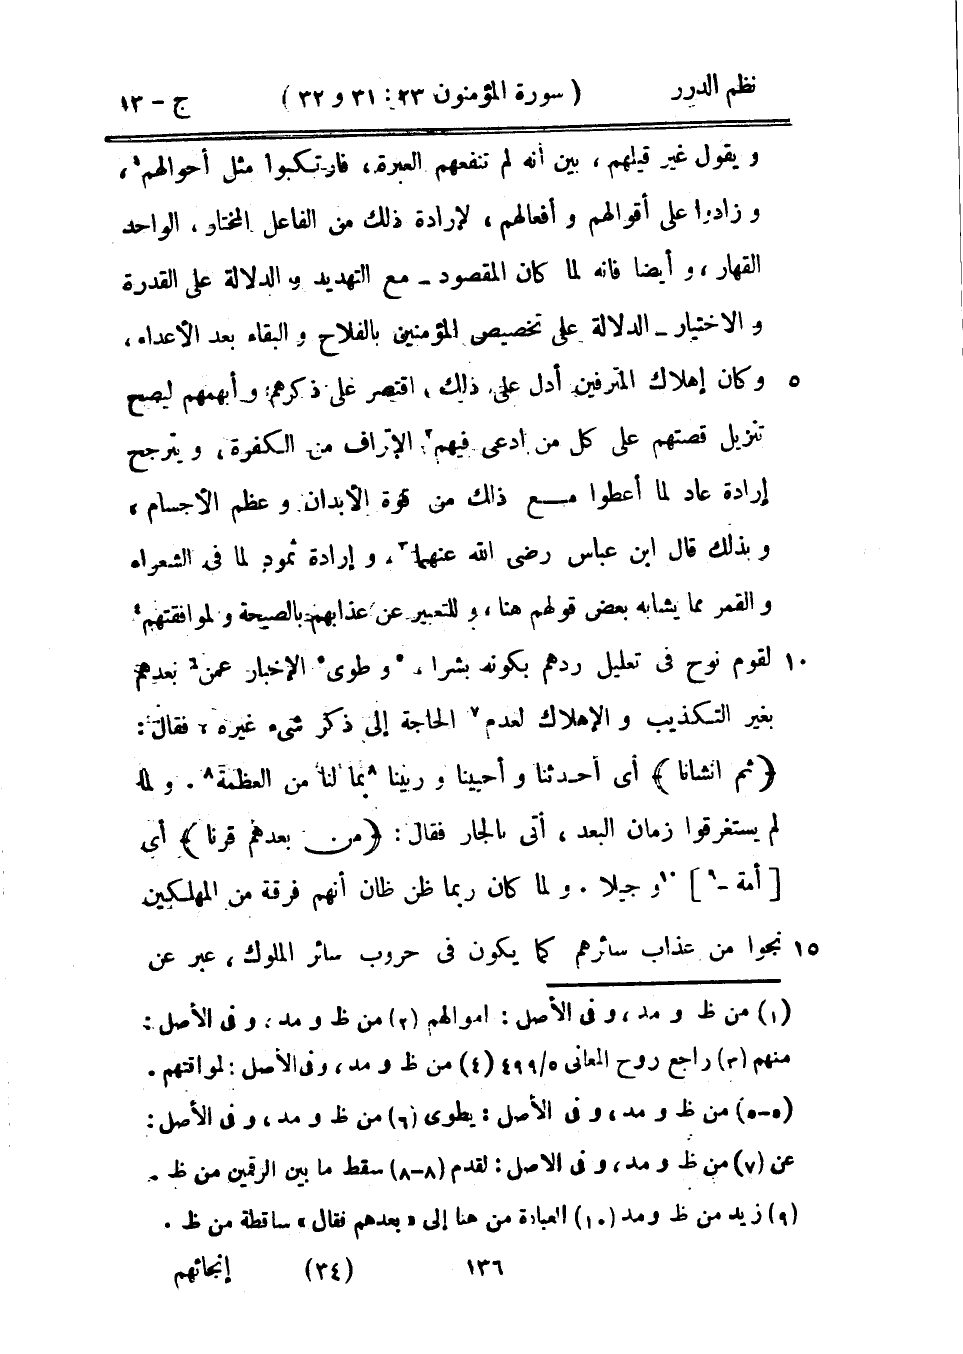 نظم الدرر ( سورة المؤمنون ٢٣ : ٣١ و ٣٢ ) ج – ١٣
و يقول غير قيلهم ، بين أنه لم تنفعهم العبرة ، فارتكبوا مثل أحوالهم١ ،
و زادوا على أقوالهم و أفعالهم ، لإرادة ذلك من الفاعل المختار ، الواحد
القهار ، و أيضا فانه لما كان المقصود – مع التهديد و الدلالة على القدرة
و الاختيار – الدلالة على تخصيص المؤمنين بالفلاح و البقاء بعد الأعداء ،
٥ وكان إهلاك المترفين أدل على ذلك ، اقتصر على ذكرهم و أبهمهم ليصح
تنزيل قصتهم على كل من ادعى فيهم٢ الإتراف من الكفرة ، و يترجح
إرادة عاد لما أعطوا مع ذلك من قوة الأبدان و عظم الأجسام ،
و بذلك قال ابن عباس رضى الله عنهما٣ ، و إرادة ثمود لما فى الشعراء
و القمر مما يشابه بعض قولهم هنا ، و للتعبير عن عذابهم بالصيحة و لموافقتهم٤
١٠ لقوم نوح فى تعليل ردهم بكونه بشرا ، ٥و طوى٥ الإخبار عمن٦ بعدهم
بغير التكذيب و الإهلاك لعدم٧ الحاجة إلى ذكر شىء غيره ، فقال :
﴿ ثم انشانا ﴾ أى أحدثنا و أحيينا و ربينا ٨بما لنا من العظمة٨ . و لما
لم يستغرقوا زمان البعد ، أتى بالجار فقال : ﴿ من بعدهم قرنا ﴾ أى
[ أمة –٩ ] ١٠و جيلا . و لما كان ربما ظن ظان أنهم فرقة من المهلكين
١٥ نجوا من عذاب سائرهم كما يكون فى حروب سائر الملوك ، عبر عن
(١) من ظ و مد ، و فى الأصل : اموالهم (٢) من ظ و مد ، و فى الأصل :
منهم (٣) راجع روح المعانى ٥/٤٩٩ (٤) من ظ و مد ، وفى الأصل : لمواقتهم .
(٥–٥) من ظ و مد ، و فى الأصل : يطوى (٦) من ظ و مد ، و فى الأصل :
عن (٧) من ظ و مد ، و فى الاصل : لقدم (٨–٨) سقط ما بين الرقمين من ظ .
(٩) زيد من ظ ومد (١٠) العبارة من هنا إلى « بعدهم فقال » ساقطة من ظ .
١٣٦ (٣٤) إنجائهم